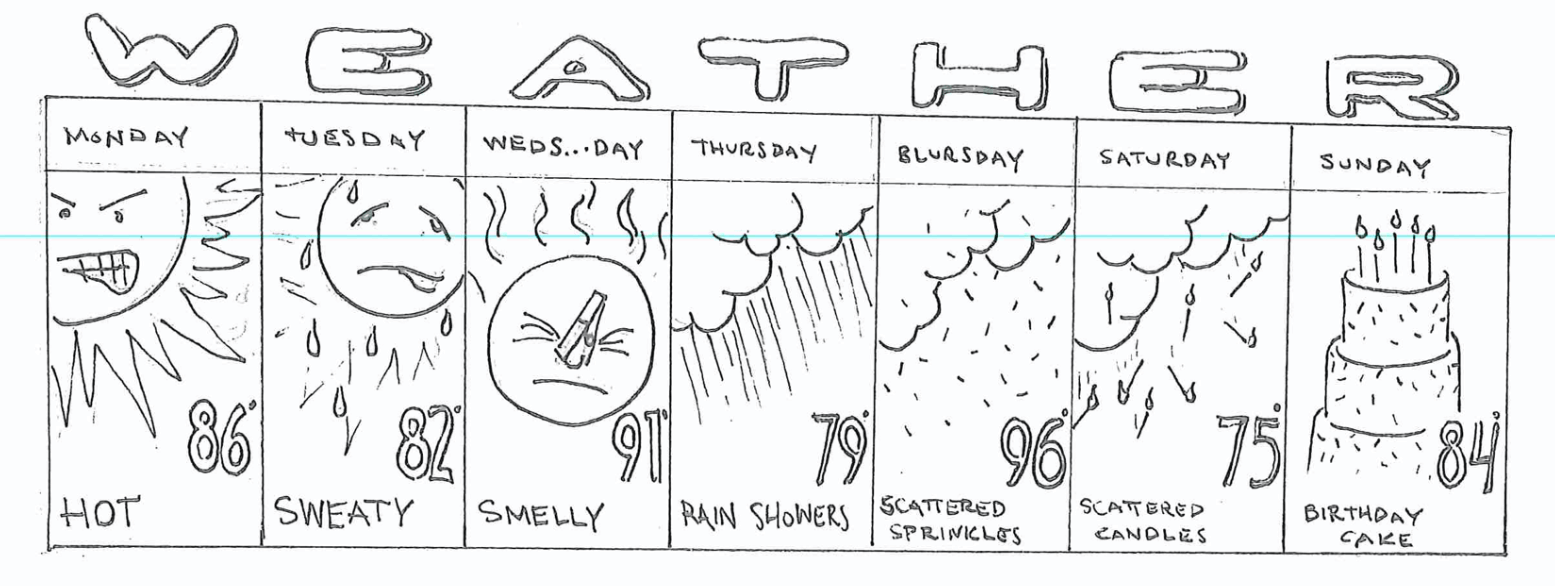 WEATHER
MONDAY
TUESDAY
WEDS...DAY
THURSDAY
BLURSDAY
SATURDAY
SUNDAY
86°
82°
91°
79°
96°
75°
84°
HOT
SWEATY
SMELLY
RAIN SHOWERS
SCATTERED
SPRINKLES
SCATTERED
CANDLES
BIRTHDAY
CAKE